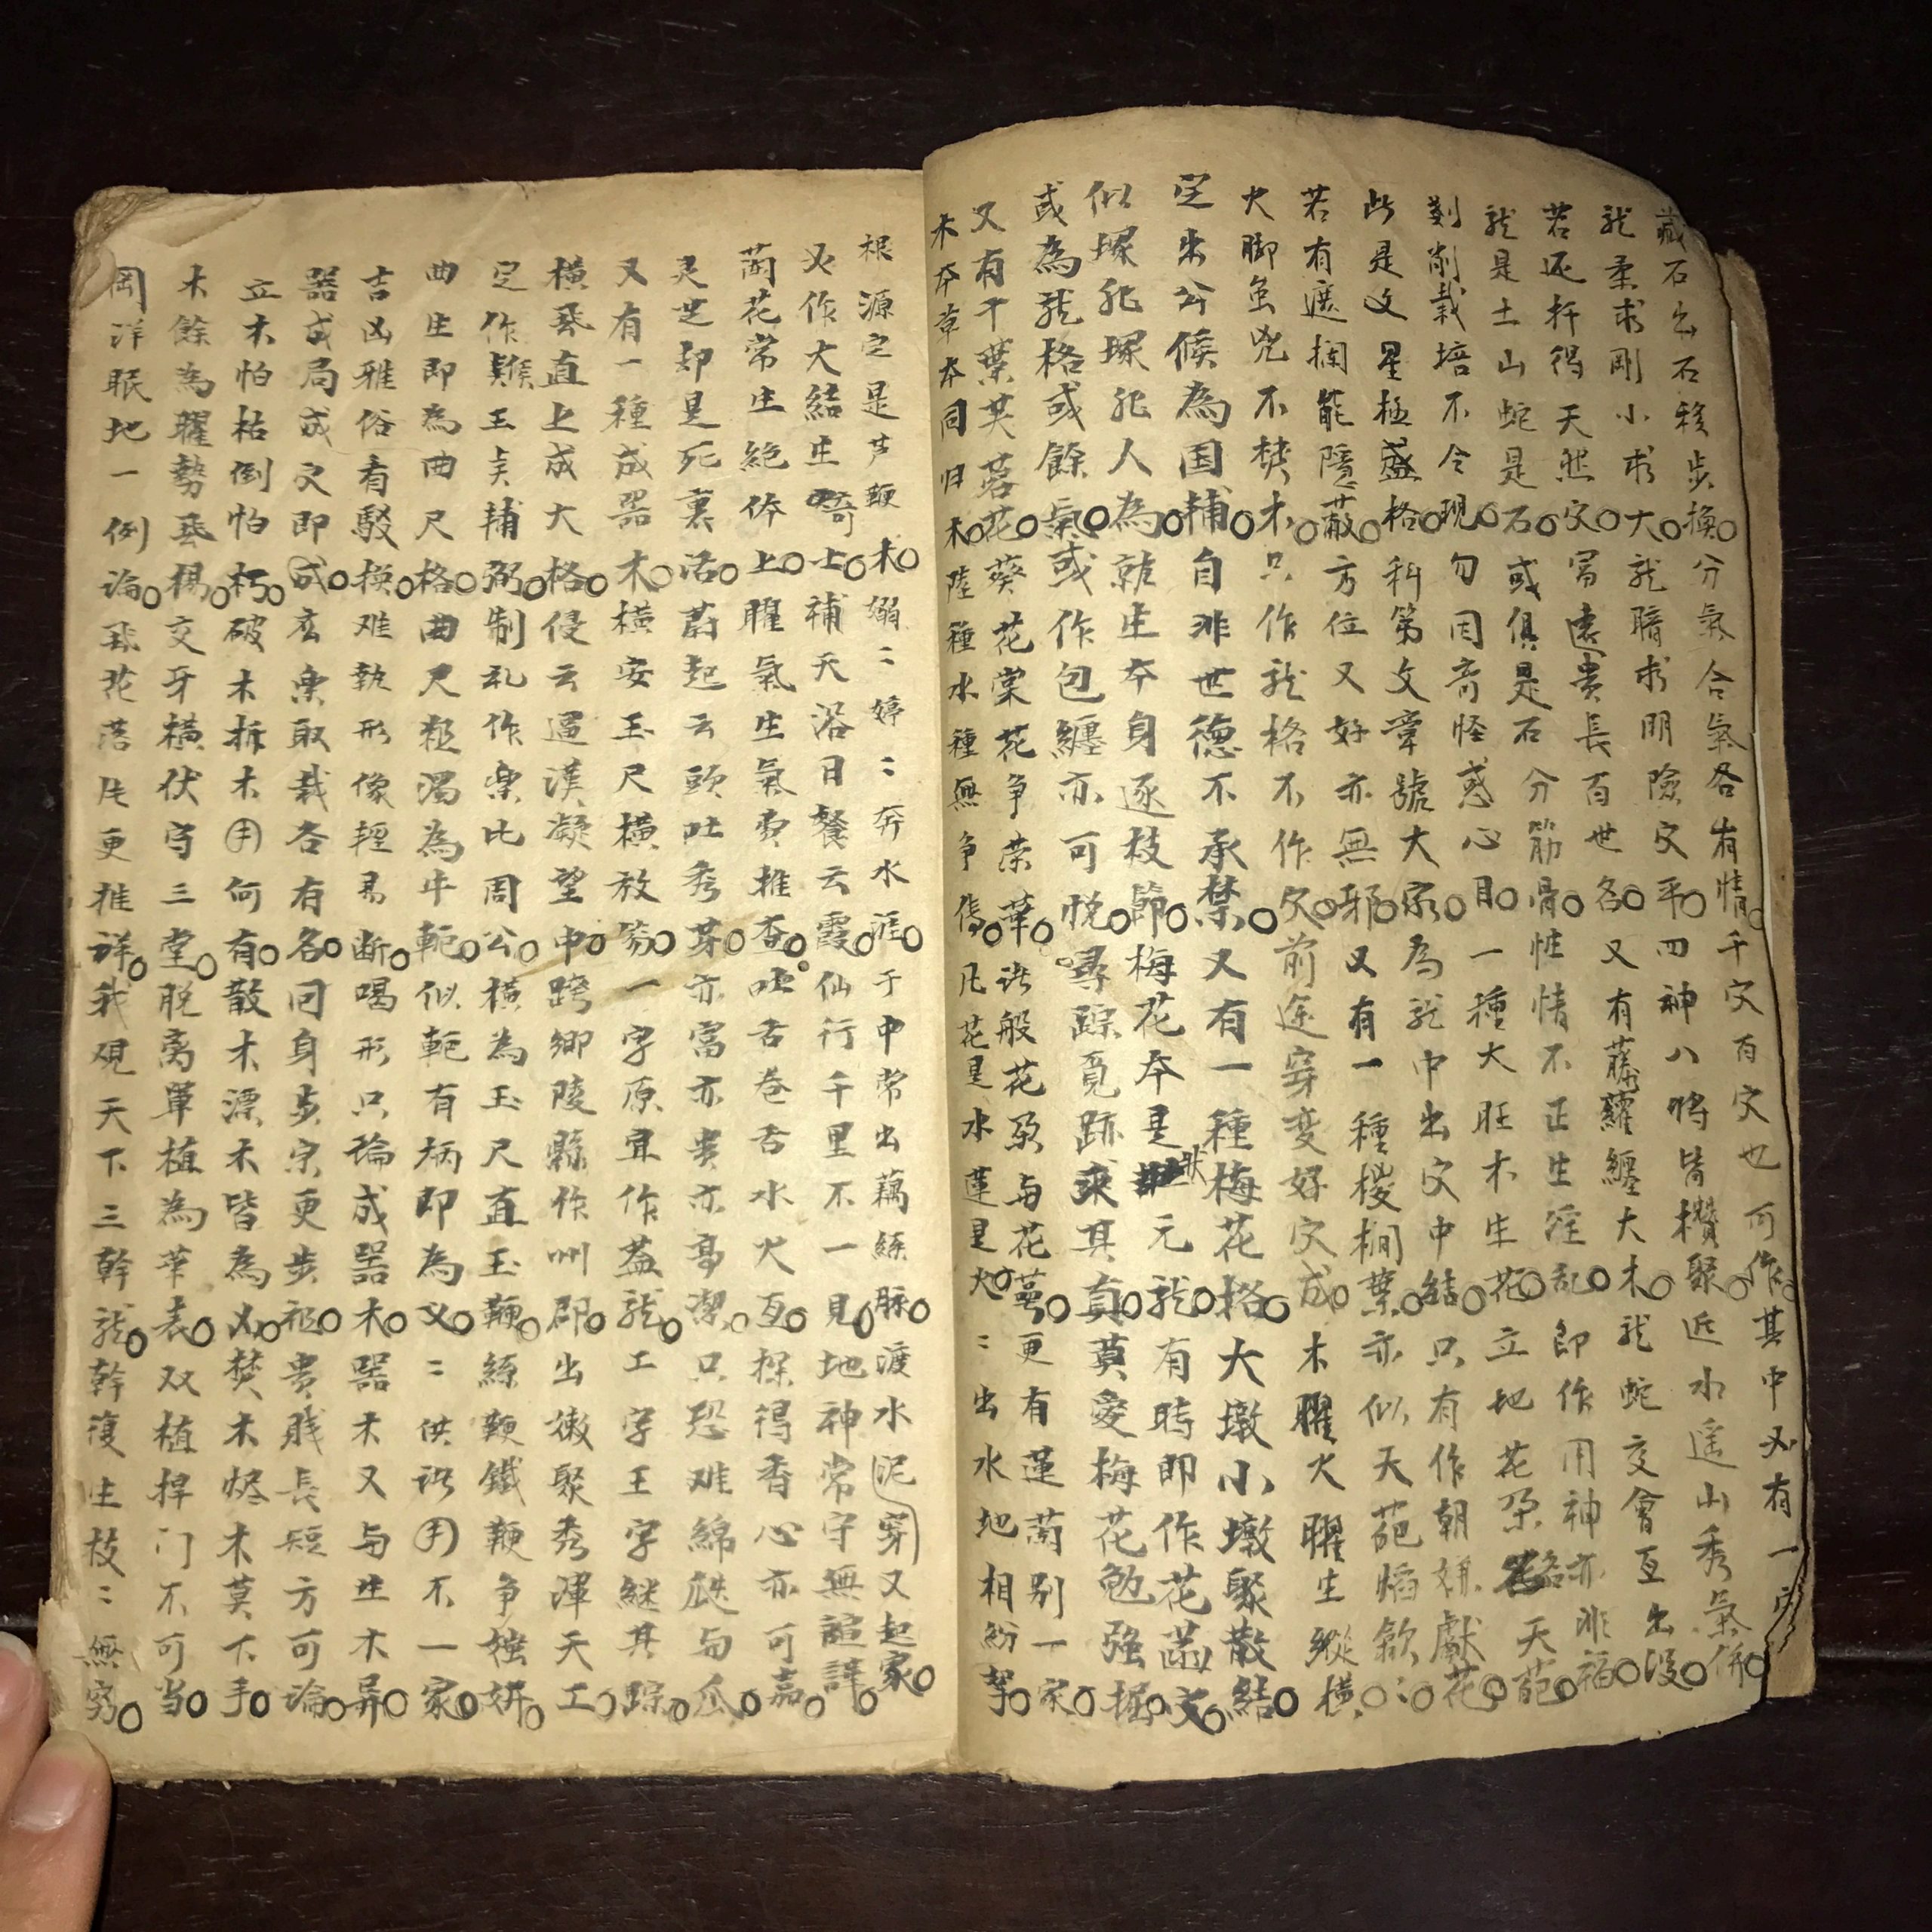 藏石出石移步換○分氣合氣各有情○千穴百穴也可作○其中必有一穴
龙柔求剛小求大○龙暗求明險穴平○四神八將皆攢聚○近水遥山秀氣併○
若还扦得天然穴○富遠贵長百世名○又有藤蘿纏大木○龙蛇交會互出沒○
龙是土山蛇是石○或俱是石分筋骨○性情不正生淫乱○即作用神亦非福○
剗削栽培不令現○勿因奇怪惑心目○一種大旺木生花○立地花朵格天葩○
此是文星極盛格○科第文章號大家○為龙中出穴中結○只有作朝妍獻花○
若有遮攔能隱蔽○方位又好亦無邪○又有一種椶榈葉○亦似天葩焰歛○
火脚虽兇不焚木○只作龙格不作穴○前途穿变好穴成○木曜火曜生縱橫○
定出公候為国補○自非世德不承禁○又有一種梅花格○大墩小墩聚散結○
似堁非堁非人為○龍生夲身逐枝節○梅花夲是狀元龙○有時即作花菡文○
或為龙格或餘氣○或作包纏亦可悅○尋踪覓跡求其真○莫愛梅花勉强掘○
又有千葉芙蓉花○葵花棠花争荣華○此般花朶与花萼○更有蓮蔄别一家○
木夲草夲同归木○陸種水種無争傷○凡花是水蓮是火○出水地相紛拏○
根源定是芦鞭木○嫋〻婷〻奔水涯○于中常出藕絲脉○渡水泥穿又起家○
火作大結生畸士○補天浴日餐云霞○仙行千里不一見○地神常守無諠譁○
蔄花常生絶体上○曜氣生氣费推查○吐舌卷舌水火互○探得香心亦可嘉○
灵芝却是死裏活○蔚起云頭吐秀芽○亦富亦贵亦高潔○只恐难綿瓞与瓜○
又有一種成器木○横安玉尺横放笏○一字原宜作蓋龙○工字王字継其踪○
横飛直上成大格○侵云逼漢凝望中○跨鄉陵縣作州郡○出嫩聚秀渾天工○
定作難王与輔弼○制礼作樂比周公○横為玉尺直玉鞭○絲鞭鐵鞭争独妍○
曲生即為曲尺格○曲尺粗濁為牛軛○似軛有柄即為义○〻供此用不一家○
吉凶雅俗看駁換○难執形像輕易断○喝形只論成器木○器木又与生木异○
器成局成穴即成○宏樂取栽各有名○同身步宗更步祖○贵賎長短方可論○
立木怕枯倒怕朽○破木拆木用何有○散木漂木皆為凶○焚木烬木莫下手○
木餘為曜勢飛揚○交牙横伏守三堂○脱离單植為華表○双植捍门不可当○
岡洋眠地一例論○飛花落片更推詳○我覌天下三幹龙○幹復生枝〻無窮○